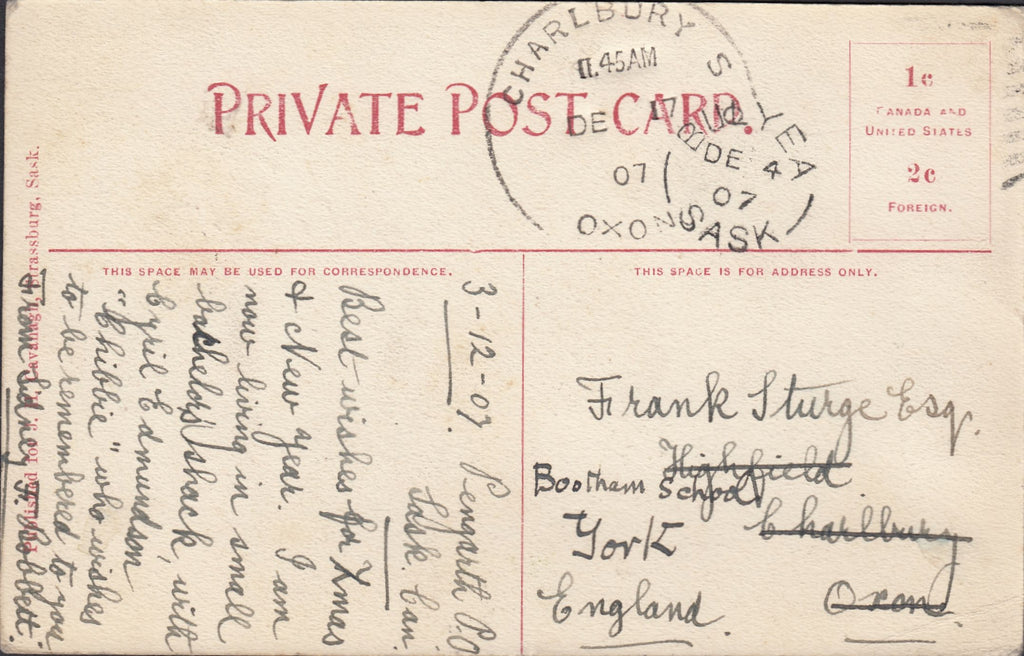 CHARLBURY S.
11.45AM
DE 17
07
OXON
PRIVATE POST CARD.
DE 4
07
SASK
1c
CANADA AND
UNITED STATES
2c
FOREIGN.
THIS SPACE MAY BE USED FOR CORRESPONDENCE.
THIS SPACE IS FOR ADDRESS ONLY.
3-12-07. Pengarth P.O
Sask. Can.
Best wishes for Xmas
& New year. I am
now living in small
bachelors shack, with
Cyril Edmundson,
"Chibbie" who wishes
to be remembered to you
From Sidney H.
Published for Cavanagh, Strassburg, Sask.
Frank Sturge Esq.
Highfield
Bootham School
Charlbury
York
Oxon
England.